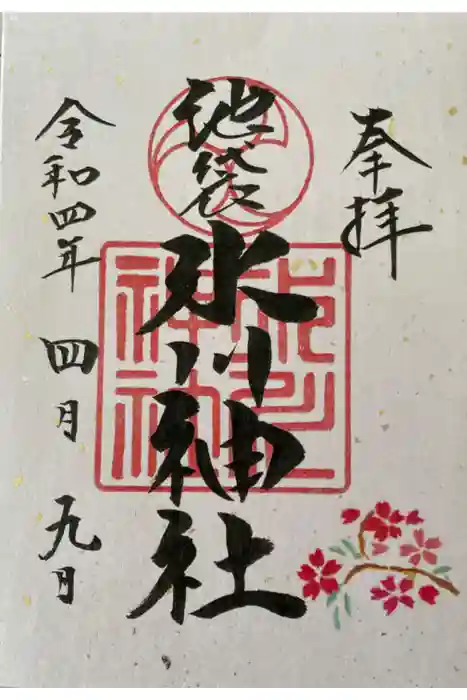 奉拝
池袋
氷川神社
令和四年 四月 九日
氷川
神社